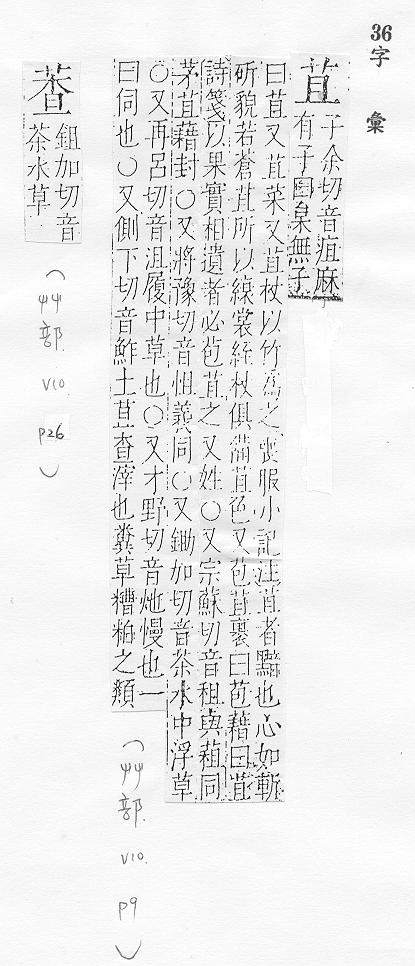 36字彙
苴
子余切音疽麻
有子曰枲無子
曰苴又苴菜又苴杖以竹爲之喪服小記注苴者黯也心如斬
斫貌若蒼苴所以縗裳絰杖俱備苴色又苞苴裹曰苞藉曰苴
詩箋以果實相遺者必苞苴之又姓○又宗蘇切音租與蒩同
茅苴藉封○又將豫切音怚義同○又鋤加切音茶水中浮草
○又再呂切音沮履中草也○又才野切音灺慢也一
曰伺也○又側下切音鮓土苴查滓也糞草糟粕之類
(艸部. V10. P9)
鉏加切音
茶水草
(艸部. V10. P26)